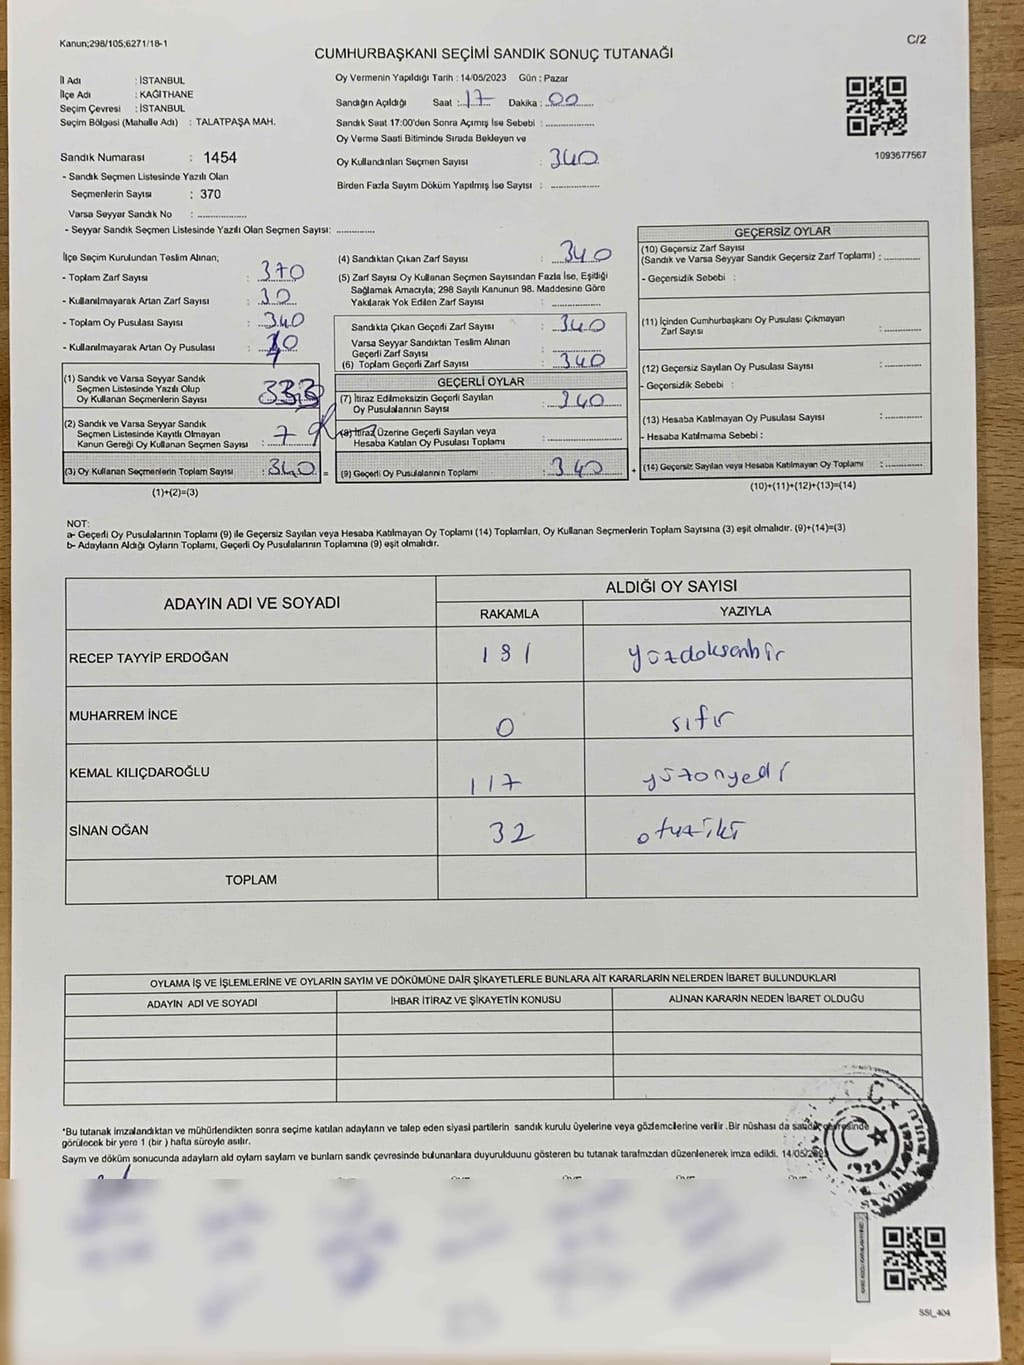 Kanun;298/105;6271/18-1
C/2
CUMHURBAŞKANI SEÇİMİ SANDIK SONUÇ TUTANAĞI
İl Adı : İSTANBUL
İlçe Adı : KAĞITHANE
Seçim Çevresi : İSTANBUL
Seçim Bölgesi (Mahalle Adı) : TALATPAŞA MAH.
Sandık Numarası : 1454
- Sandık Seçmen Listesinde Yazılı Olan
Seçmenlerin Sayısı : 370
Varsa Seyyar Sandık No : ................
- Seyyar Sandık Seçmen Listesinde Yazılı Olan Seçmen Sayısı: ............
Oy Vermenin Yapıldığı Tarih : 14/05/2023 Gün : Pazar
Sandığın Açıldığı Saat : 17 Dakika : 00
Sandık Saat 17:00'den Sonra Açımış İse Sebebi : ................
Oy Verme Saati Bitiminde Sırada Bekleyen ve
Oy Kullandırılan Seçmen Sayısı : 340
Birden Fazla Sayım Döküm Yapılmış İse Sayısı : ................
1093677567
İlçe Seçim Kurulundan Teslim Alınan;
- Toplam Zarf Sayısı : 370
- Kullanılmayarak Artan Zarf Sayısı : 30
- Toplam Oy Pusulası Sayısı : 340
- Kullanılmayarak Artan Oy Pusulası :
(1) Sandık ve Varsa Seyyar Sandık
Seçmen Listesinde Yazılı Olup
Oy Kullanan Seçmenlerin Sayısı : 333
(2) Sandık ve Varsa Seyyar Sandık
Seçmen Listesinde Kayıtlı Olmayan
Kanun Gereği Oy Kullanan Seçmen Sayısı : 7
(3) Oy Kullanan Seçmenlerin Toplam Sayısı : 340 =
(1)+(2)=(3)
(4) Sandıktan Çıkan Zarf Sayısı : 340
(5) Zarf Sayısı Oy Kullanan Seçmen Sayısından Fazla İse, Eşitliği
Sağlamak Amacıyla; 298 Sayılı Kanunun 98. Maddesine Göre
Yakılarak Yok Edilen Zarf Sayısı : ................
Sandıkta Çıkan Geçerli Zarf Sayısı : 340
Varsa Seyyar Sandıktan Teslim Alınan
Geçerli Zarf Sayısı : ................
(6) Toplam Geçerli Zarf Sayısı : 340
GEÇERLİ OYLAR
(7) İtiraz Edilmeksizin Geçerli Sayılan
Oy Pusulalarının Sayısı : 340
(8) İtiraz Üzerine Geçerli Sayılan veya
Hesaba Katılan Oy Pusulası Toplamı : ................
(9) Geçerli Oy Pusulalarının Toplamı : 340 +
GEÇERSİZ OYLAR
(10) Geçersiz Zarf Sayısı
(Sandık ve Varsa Seyyar Sandık Geçersiz Zarf Toplamı) : ............
- Geçersizlik Sebebi :
(11) İçinden Cumhurbaşkanı Oy Pusulası Çıkmayan
Zarf Sayısı : ............
(12) Geçersiz Sayılan Oy Pusulası Sayısı : ............
- Geçersizlik Sebebi :
(13) Hesaba Katılmayan Oy Pusulası Sayısı : ............
- Hesaba Katılmama Sebebi :
(14) Geçersiz Sayılan veya Hesaba Katılmayan Oy Toplamı : ............
(10)+(11)+(12)+(13)=(14)
NOT:
a- Geçerli Oy Pusulalarının Toplamı (9) ile Geçersiz Sayılan veya Hesaba Katılmayan Oy Toplamı (14) Toplamları, Oy Kullanan Seçmenlerin Toplam Sayısına (3) eşit olmalıdır. (9)+(14)=(3)
b- Adayların Aldığı Oyların Toplamı, Geçerli Oy Pusulalarının Toplamına (9) eşit olmalıdır.
ADAYIN ADI VE SOYADI
ALDIĞI OY SAYISI
RAKAMLA YAZIYLA
RECEP TAYYİP ERDOĞAN 191 yüzdoksanbir
MUHARREM İNCE 0 sıfır
KEMAL KILIÇDAROĞLU 117 yüzonyedi
SİNAN OĞAN 32 otuziki
TOPLAM
OYLAMA İŞ VE İŞLEMLERİNE VE OYLARIN SAYIM VE DÖKÜMÜNE DAİR ŞİKAYETLERLE BUNLARA AİT KARARLARIN NELERDEN İBARET BULUNDUKLARI
ADAYIN ADI VE SOYADI İHBAR İTİRAZ VE ŞİKAYETİN KONUSU ALINAN KARARIN NEDEN İBARET OLDUĞU
*Bu tutanak imzalandıktan ve mühürlendikten sonra seçime katılan adayların ve talep eden siyasi partilerin sandık kurulu üyelerine veya gözlemcilerine verilir .Bir nüshası da sandık çevresinde
görülecek bir yere 1 (bir ) hafta süreyle asılır.
Saym ve döküm sonucunda adaylarn ald oylarn saylarn ve bunlarn sandk çevresinde bulunanlara duyurulduunu gösteren bu tutanak tarafmzdan düzenlenerek imza edildi. 14/05/2023
T.C.
1929
SSI_404